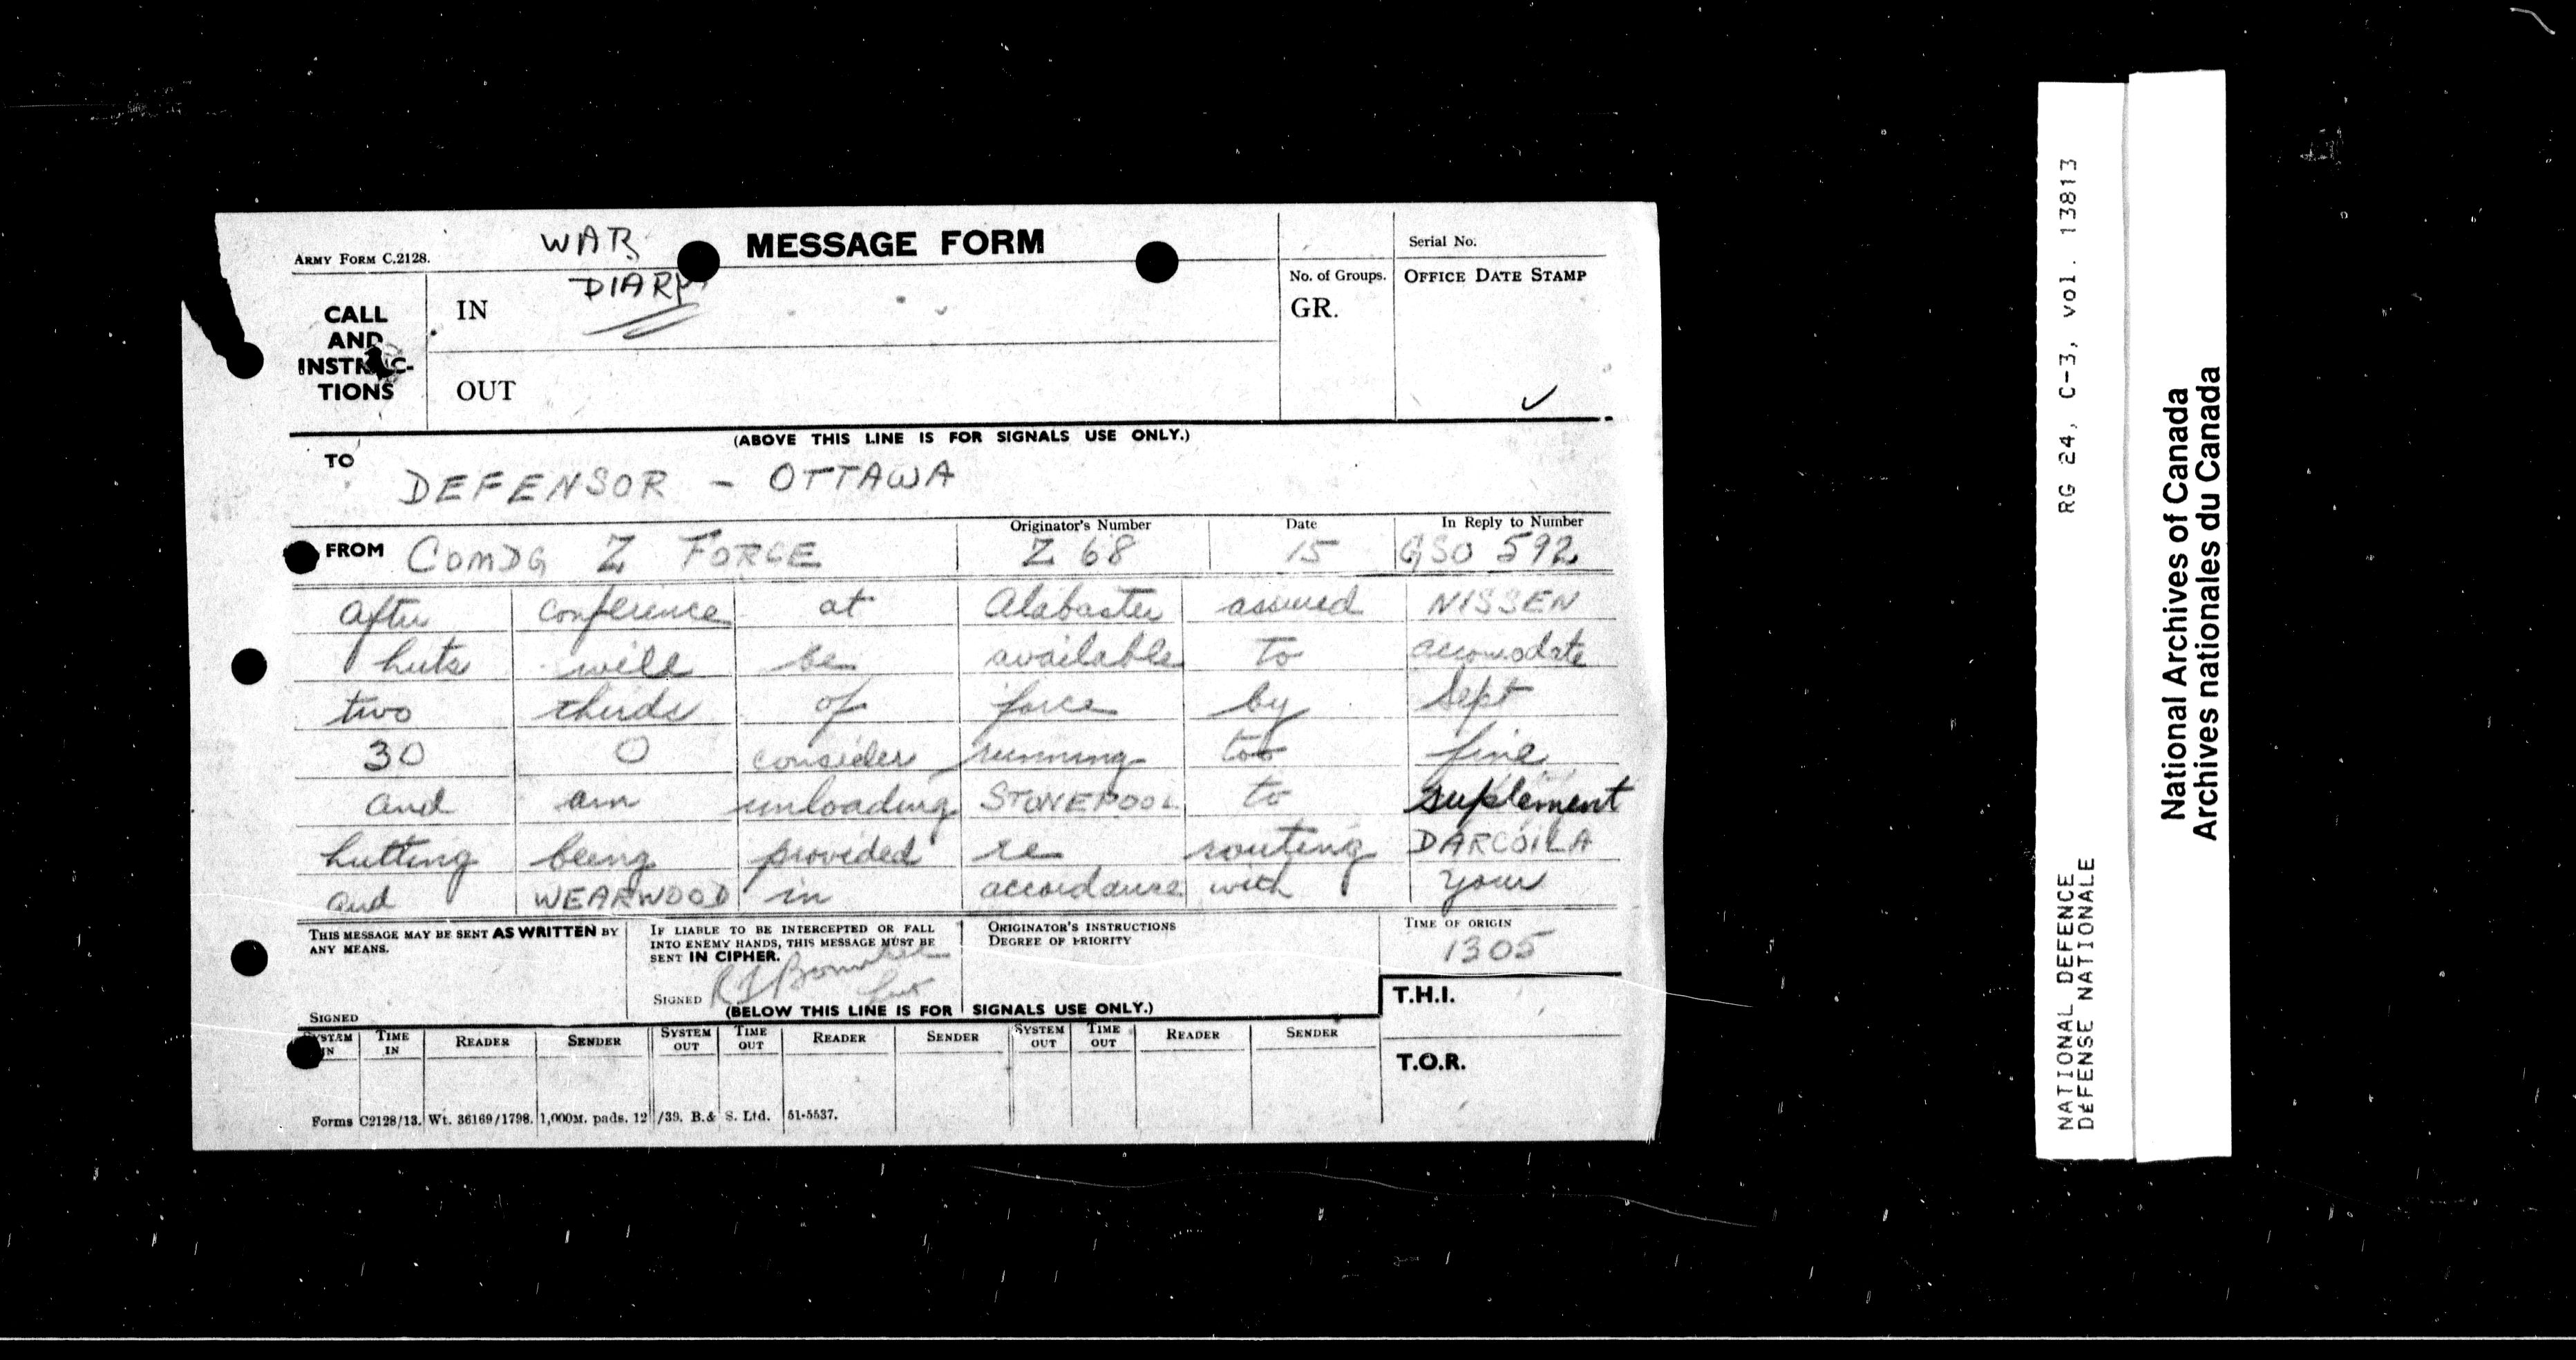 WAR
ARMY FORM C.2128.
MESSAGE FORM
Serial No.
DIARY
CALL
AND
INSTRUC-
TIONS
IN
No. of Groups.
GR.
OFFICE DATE STAMP
OUT
(ABOVE THIS LINE IS FOR SIGNALS USE ONLY.)
TO
DEFENSOR - OTTAWA
FROM COMDG Z FORCE
Originator's Number
Z 68
Date
15
In Reply to Number
GSO 592
After conference at Alabaster assured NISSEN
huts will be available to accomodate
two thirds of force by Sept
30 0 consider running too fine
and am unloading STONEPOOL to suplement
hutting being provided re routing DARCOILA
and WEARWOOD in accordance with your
THIS MESSAGE MAY BE SENT AS WRITTEN BY
ANY MEANS.
SIGNED
IF LIABLE TO BE INTERCEPTED OR FALL
INTO ENEMY HANDS, THIS MESSAGE MUST BE
SENT IN CIPHER.
SIGNED
ORIGINATOR'S INSTRUCTIONS
DEGREE OF PRIORITY
TIME OF ORIGIN
1305
(BELOW THIS LINE IS FOR SIGNALS USE ONLY.)
T.H.I.
SYSTEM IN TIME IN READER SENDER SYSTEM OUT TIME OUT READER SENDER SYSTEM OUT TIME OUT READER SENDER
T.O.R.
Forms C2128/13. Wt. 36169/1798. 1,000M. pads. 12/39. B.& S. Ltd. 51-5537.
NATIONAL DEFENCE RG 24, C-3, vol. 13813
DÉFENSE NATIONALE
National Archives of Canada
Archives nationales du Canada